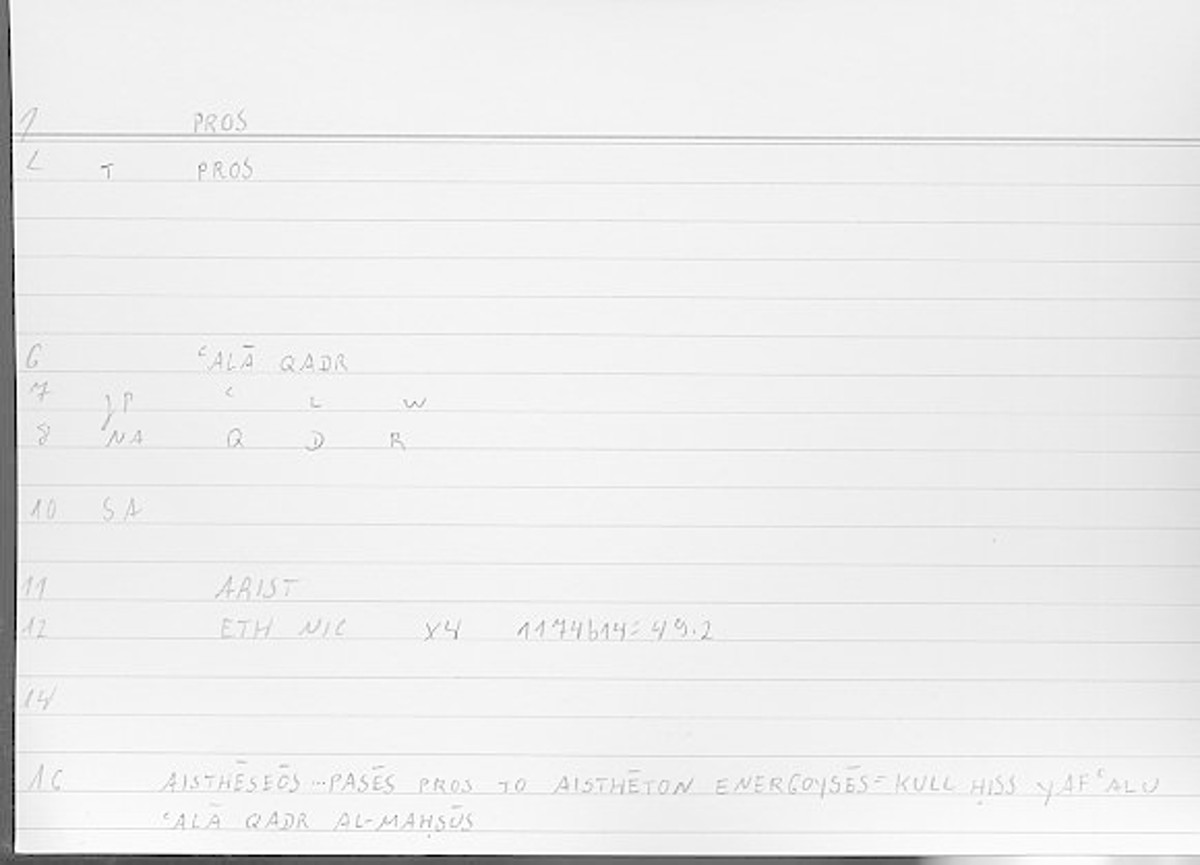 1 PROS
2 T PROS
6 ʿALĀ QADR
7 JP ʿ L W
8 NA Q D R
10 SA
11 ARIST
12 ETH NIC X4 1174b14= 49.2
14
16 AISTHĒSEŌS...PASĒS PROS TO AISTHĒTON ENERGOYSĒS= KULL ḤISS YAFʿALU
ʿALĀ QADR AL-MAḤSŪS